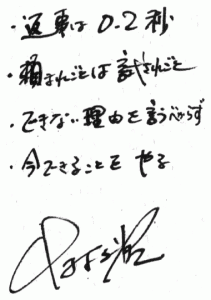 ・返事は0.2秒
・頼まれごとは試されごと
・できない理由を言うべからず
・今できることをやる